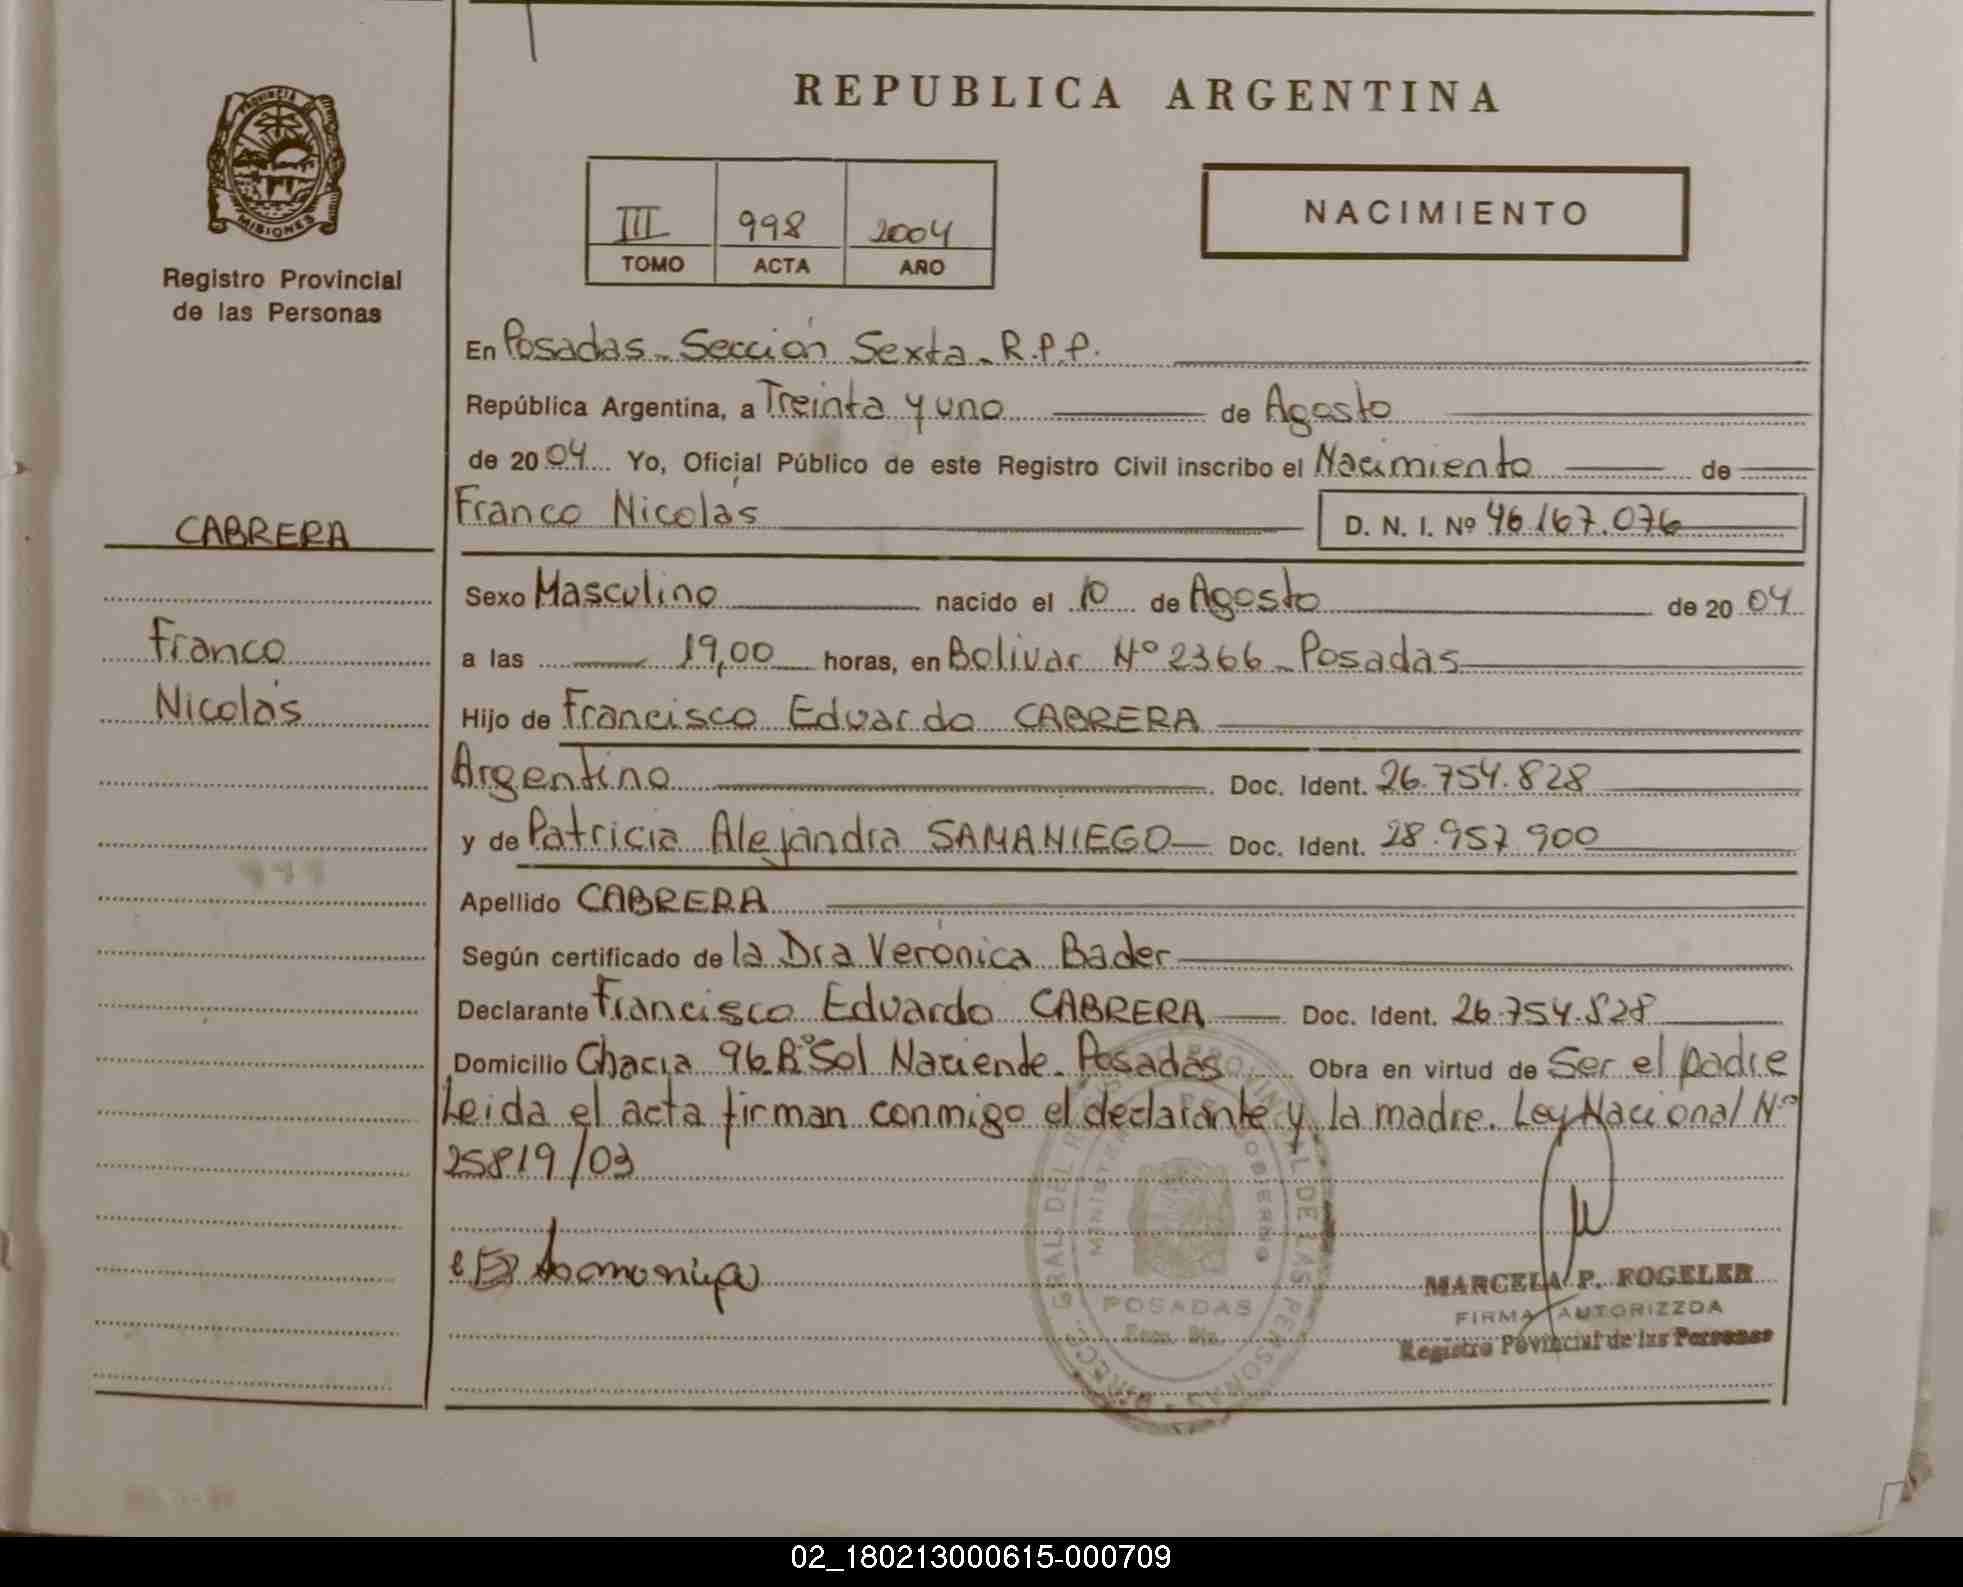 REPUBLICA ARGENTINA
PROVINCIA DE
MISIONES
Registro Provincial
de las Personas
III 998 2004
TOMO ACTA AÑO
NACIMIENTO
En Posadas - Sección Sexta - R.P.P.
República Argentina, a Treinta y uno de Agosto
de 2004 Yo, Oficial Público de este Registro Civil inscribo el Nacimiento de
CABRERA
Franco Nicolás D. N. I. Nº 46.167.076
Sexo Masculino nacido el 10 de Agosto de 2004
Franco
Nicolás
a las 19,00 horas, en Bolivar Nº 2366 - Posadas
Hijo de Francisco Eduardo CABRERA
Argentino Doc. Ident. 26.754.828
y de Patricia Alejandra SAMANIEGO Doc. Ident. 28.957.900
Apellido CABRERA
Según certificado de la Dra Verónica Bader
Declarante Francisco Eduardo CABRERA Doc. Ident. 26.754.828
Domicilio Chacra 96.Bº Sol Naciende - Posadas Obra en virtud de Ser el padre
Leida el acta firman conmigo el declarante y la madre. Ley Nacional Nº
25819/03
MARCELA P. FOGELER
FIRMA AUTORIZZDA
Registro Povincial de las Personas
POSADAS
02_180213000615-000709